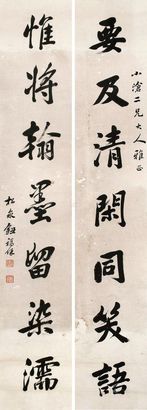 要及清閑同笑語
小滄二兄大人雅正
惟將翰墨留染濡
松泉鈕福保